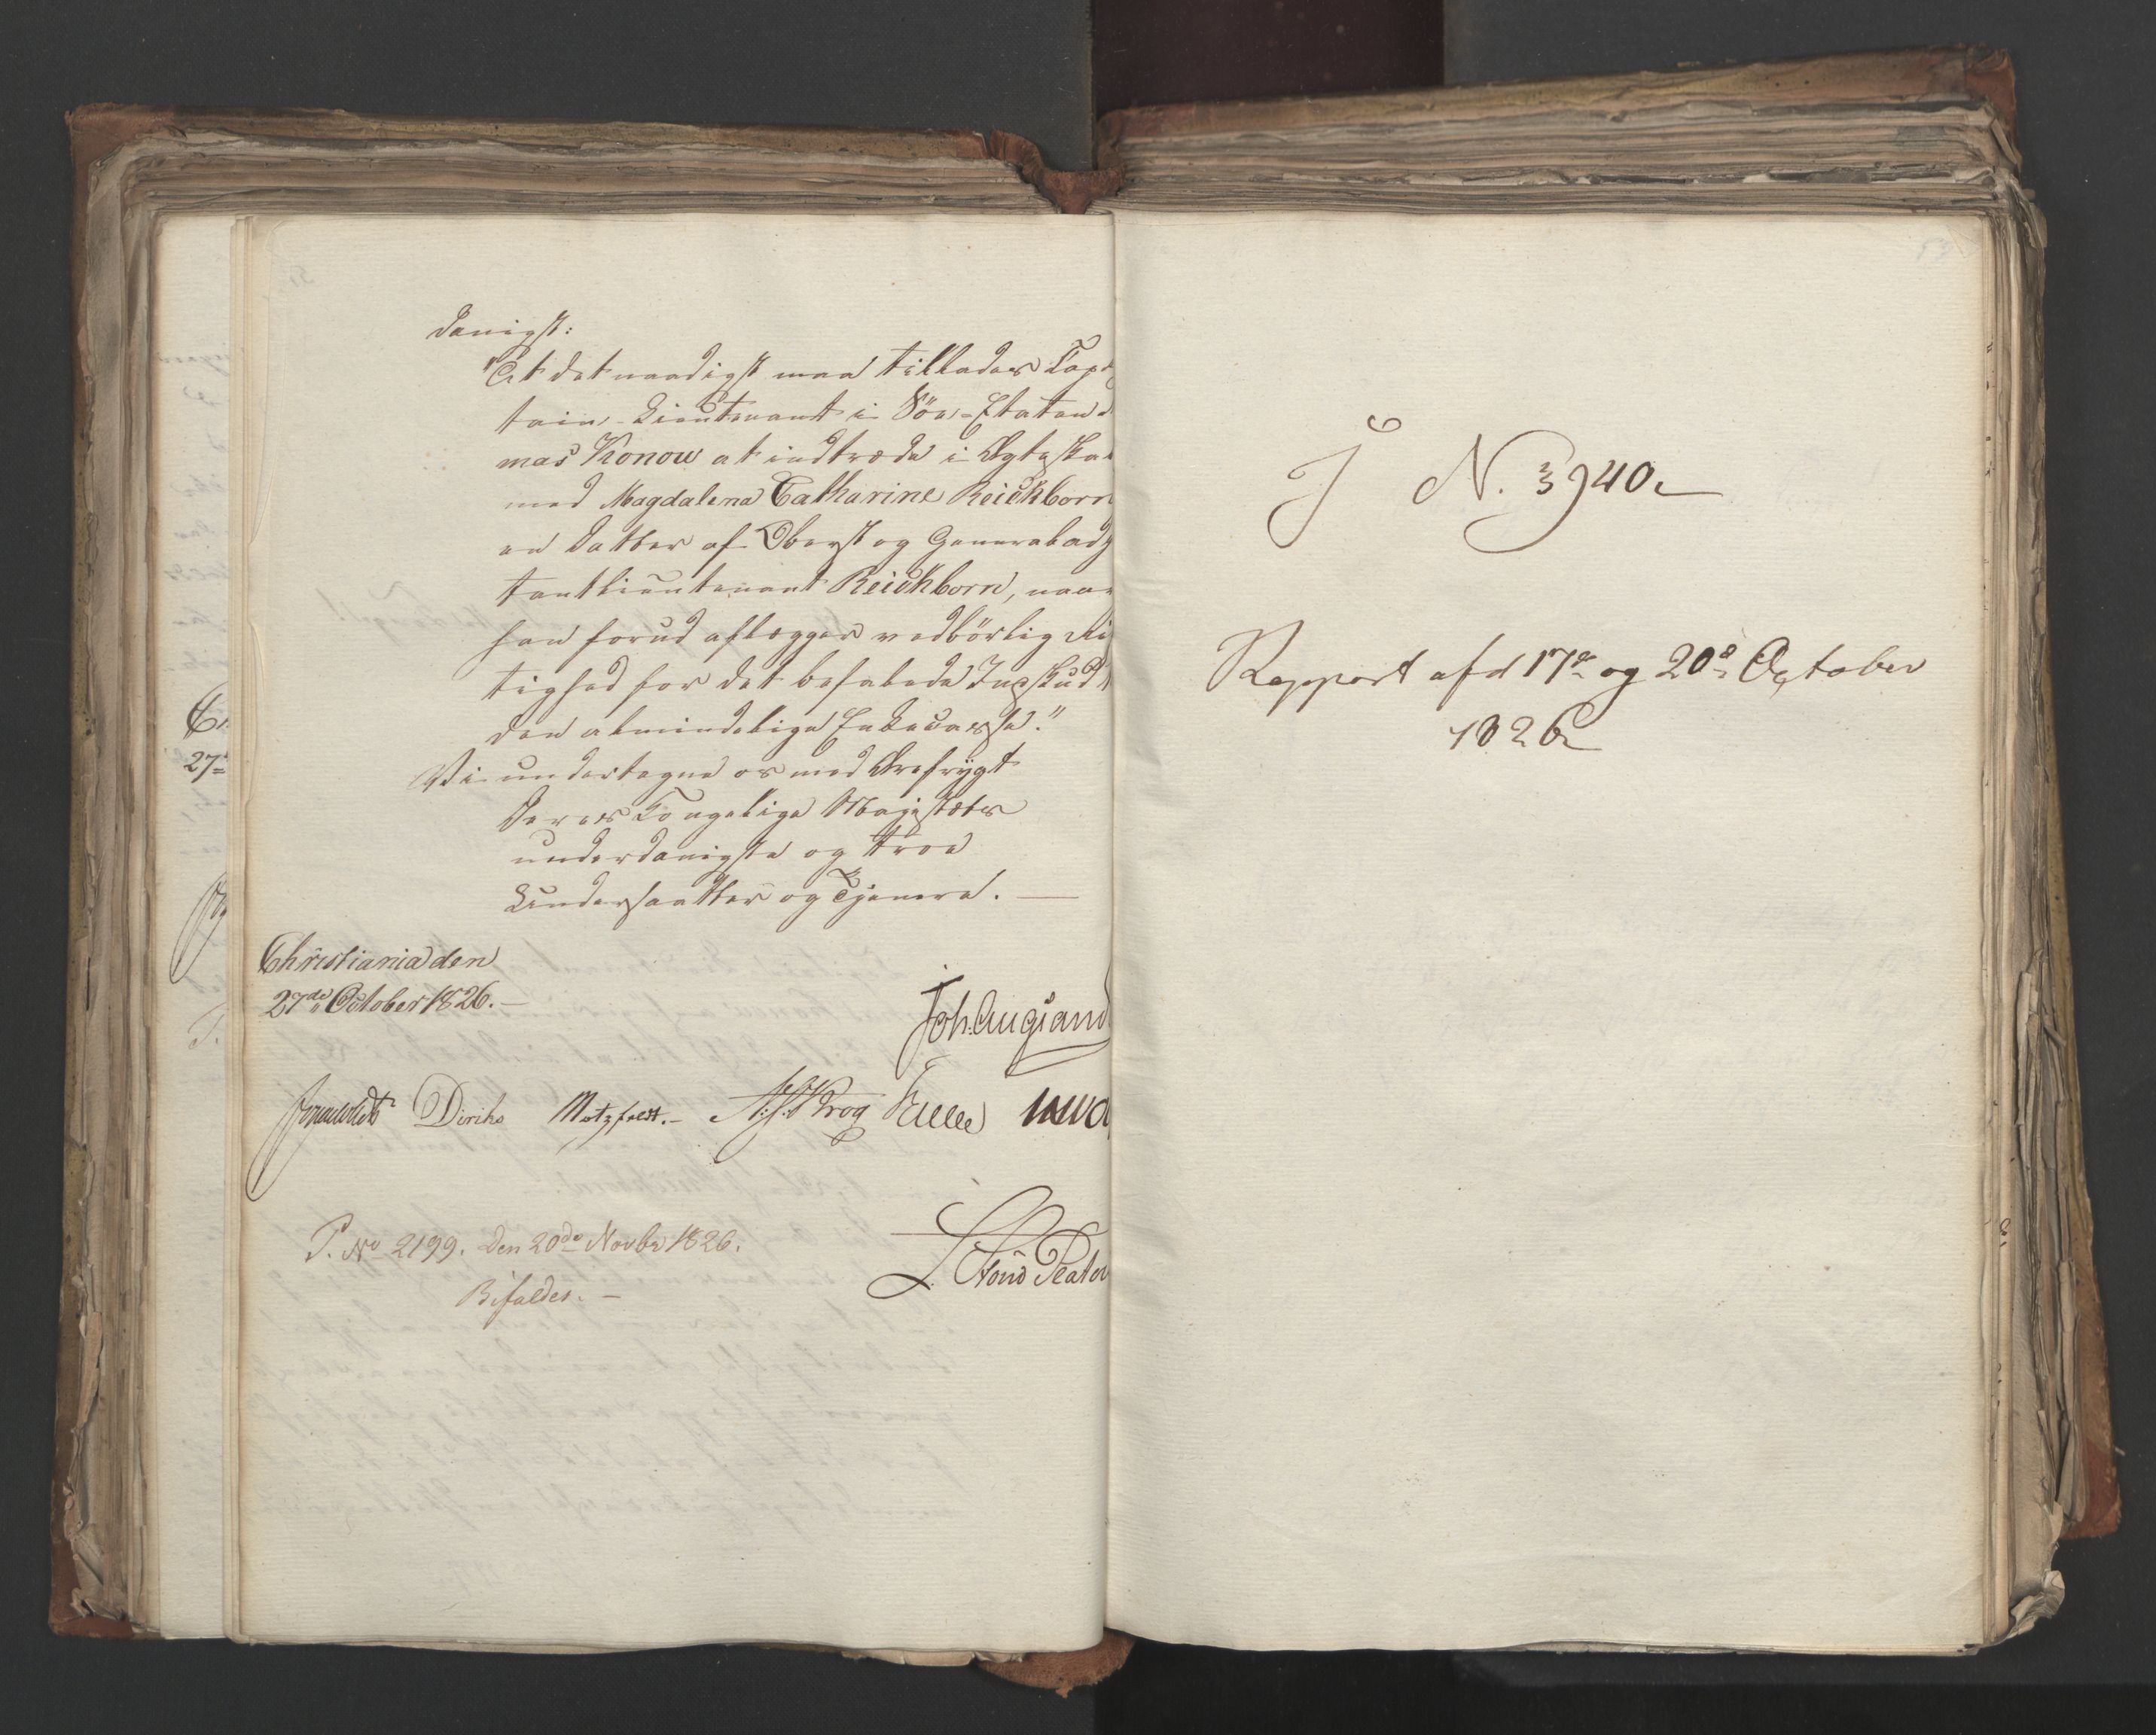 danigst:
"At det naadigst maa tillades Cap-
tain-Lieutenant i Söe-Etaten
mas Konow at indtræde i Ægteska
med Magdalena Catharine Reichborn
en Datter af Oberst og Generaladj
tantlieutenant Reichborn, naar
han forud aflægger vedbörlig Rig
tighed for det befalede Indskud
den almindelige Enkecasse."
Vi undertegne os med Ærefrygt
Deres Kongelige Majestæts
underdanigste og troe
Undersaatter og Tjenere. —
Christiania den
27de October 1826. —
Joh. Aug Sand
Diriks Motzfeldt. — A:S:Krog Falle
P. No 2199. den 20de Novbr 1826.
Bifaldes. —
L. Stoud Platou
J N. 3940
Rapport af d 17de og 20de October
1826
27